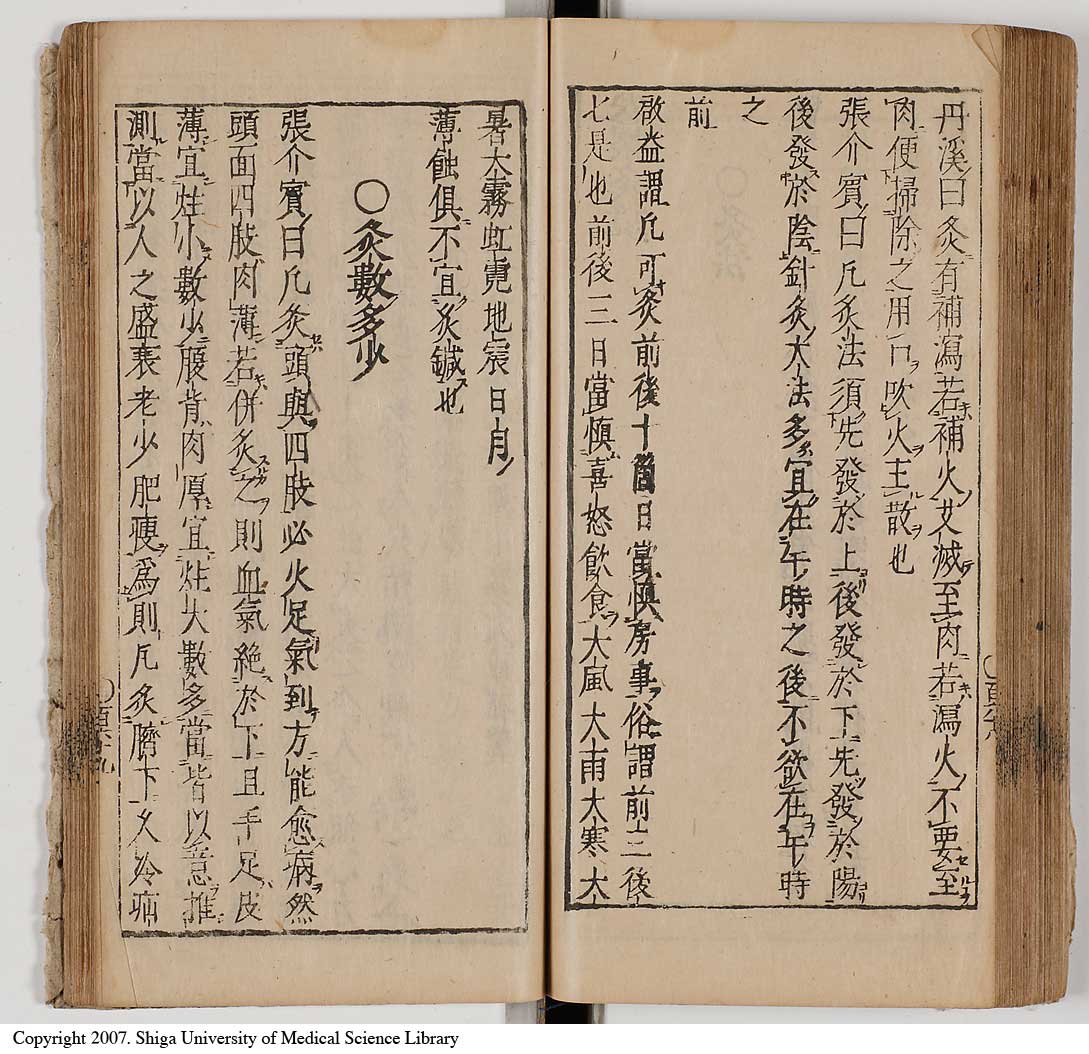 丹溪曰灸有補瀉若補火艾滅至肉若瀉火不要至
肉便掃除之用口吹火主散也
張介賓曰凡灸法須先發於上後發於下先發於陽
後發於陰針灸大法多宜在午時之後不欲在午時
之
前
啟益謂凡可灸前後十箇日當慎房事俗謂前三後
七是也前後三日當慎喜怒飲食大風大雨大寒大
暑大霧虹霓地震日月
薄蝕俱不宜灸鍼也
○灸數多少
張介賓曰凡灸頭與四肢必火足氣到方能愈病然
頭面四肢肉薄若併灸之則血氣絕於下且手足皮
薄宜炷小數少腹背肉厚宜炷大數多當皆以意推
測當以人之盛衰老少肥瘦為則凡灸臍下久冷疝
○百六八
○百六十九
Copyright 2007. Shiga University of Medical Science Library